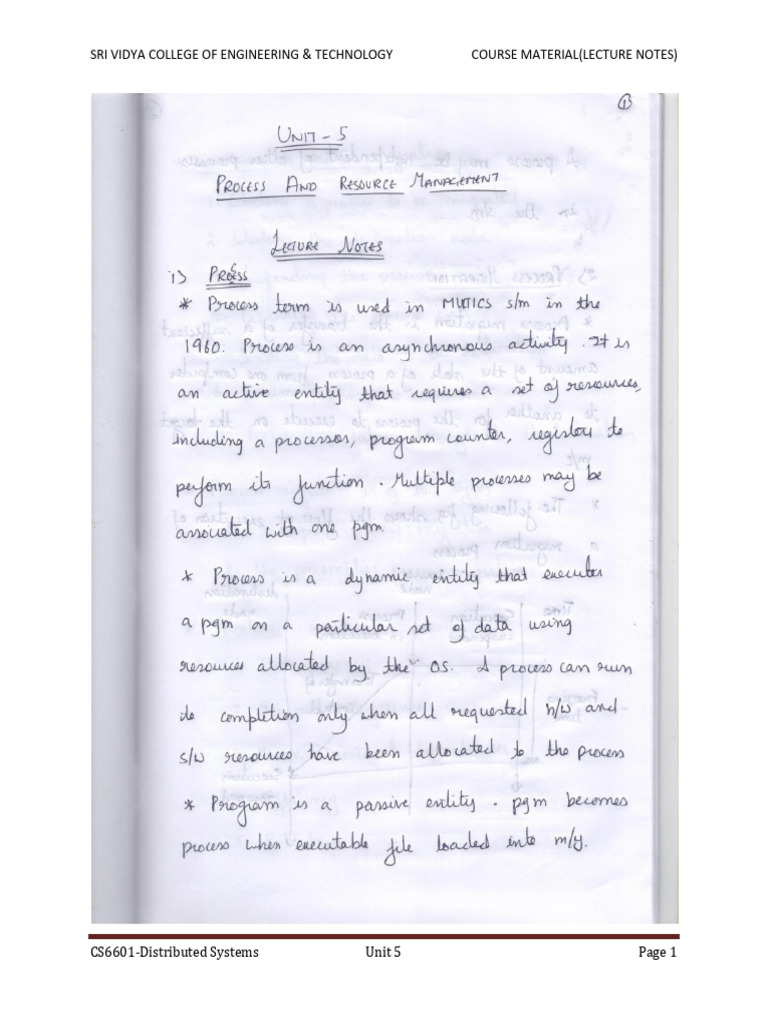 SRI VIDYA COLLEGE OF ENGINEERING & TECHNOLOGY COURSE MATERIAL(LECTURE NOTES)
1
UNIT - 5
PROCESS AND RESOURCE MANAGEMENT
LECTURE NOTES
1) PROCESS
* Process term is used in MUTICS s/m in the
1960. Process is an asynchronous activity. It is
an active entity that requires a set of resources,
including a processor, program counter, registers to
perform its function. Multiple processes may be
associated with one pgm
* Process is a dynamic entity that executes
a pgm on a particular set of data using
resources allocated by the OS. A process can run
to completion only when all requested h/w and
s/w resources have been allocated to the process
* Program is a passive entity. pgm becomes
process when executable file loaded into m/y.
CS6601-Distributed Systems Unit 5 Page 1